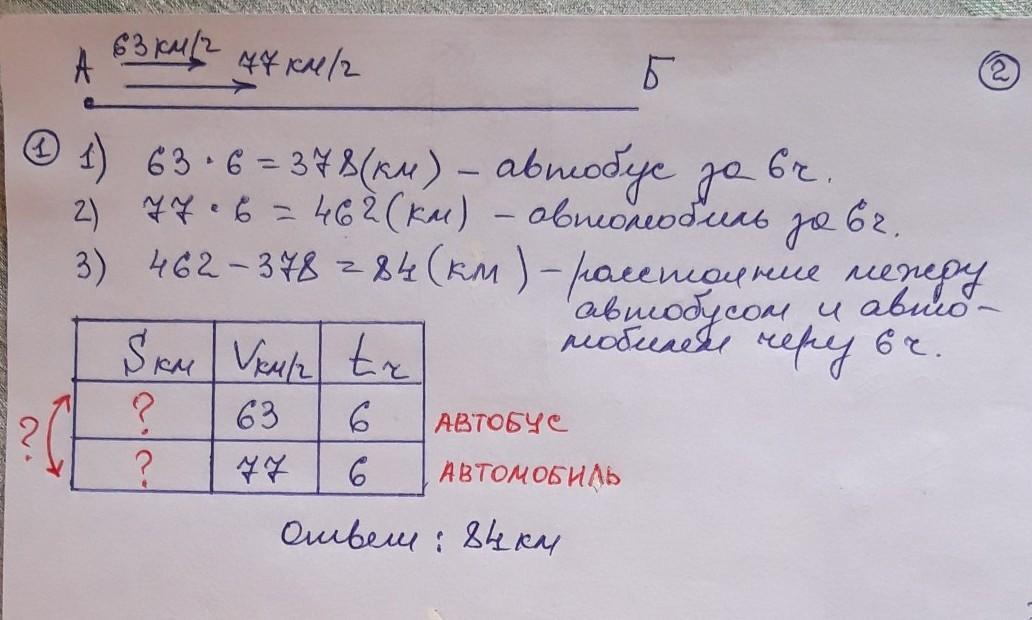 А 63 км/ч 77 км/ч Б
2
1 1) 63 · 6 = 378 (км) – автобус за 6 ч.
2) 77 · 6 = 462 (км) – автомобиль за 6 ч.
3) 462 – 378 = 84 (км) – расстояние между
автобусом и авто–
мобилем через 6 ч.
S км V км/ч t ч
? 63 6 АВТОБУС
?
? 77 6 АВТОМОБИЛЬ
Ответ : 84 км